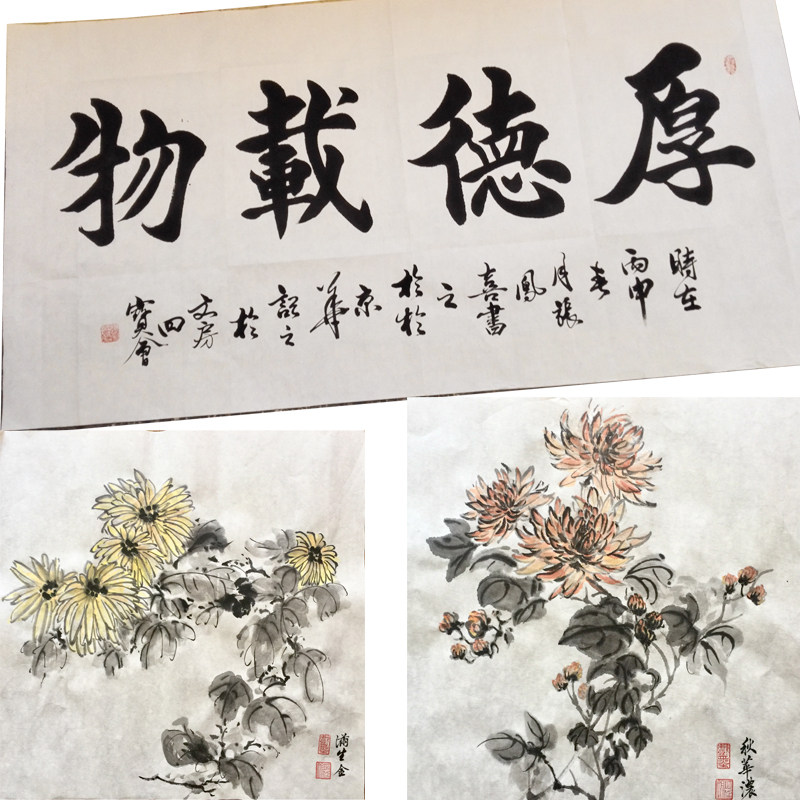 厚德載物
時在
丙申
月張
鳳
喜書
之
於
京
華
記之
於
文房
四
寶會
滿生金
秋華濃